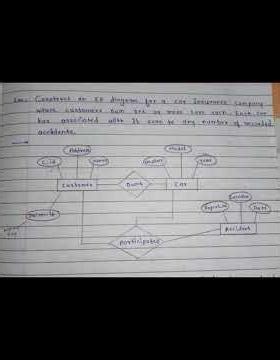 Construct an ER diagram for a car Insurance company
where customers own one or more cars each. Each car
has associated with it zero to any number of recorded
accidents.
Address
Model
C_id
name
year
Customer
Owns
Car
Location
Report_id
Date
Accident
Participates